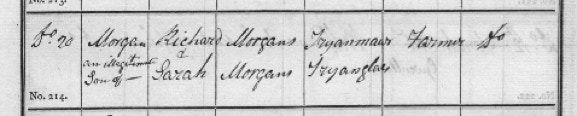 No. 213.
Do. 20 Morgan Richard Morgans Tryanmawr Farmer Do
an illegitimate &
Son of — Sarah Morgans Tryanglas
No. 214.